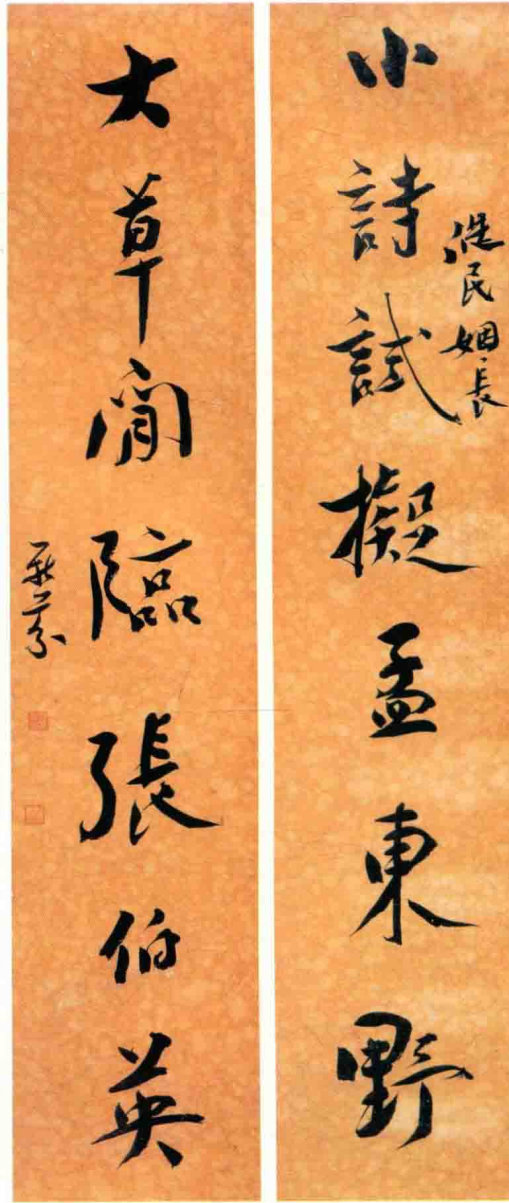 小詩試擬孟東野
民姻長
大草閒臨張伯英